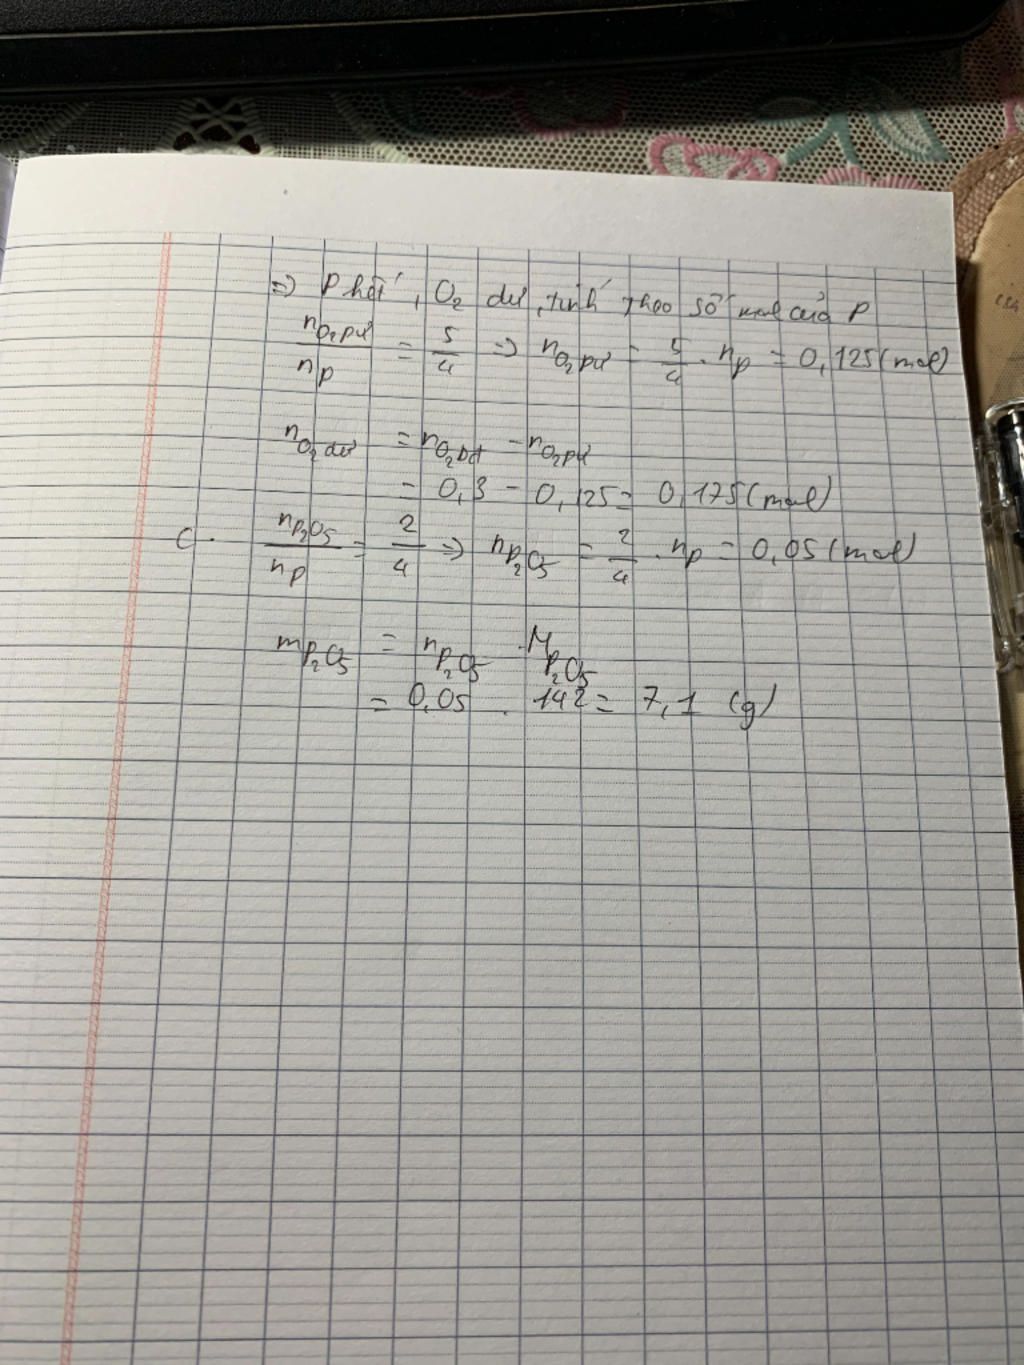 => P hết, O₂ dư, tính theo số mol của P
nO₂pư/nP = 5/4 => nO₂pư = 5/4 . nP = 0,125 (mol)
nO₂dư = nO₂bđ - nO₂pư
= 0,3 - 0,125 = 0,175 (mol)
C. nP₂O₅/nP = 2/4 => nP₂O₅ = 2/4 . nP = 0,05 (mol)
mP₂O₅ = nP₂O₅ . MP₂O₅
= 0,05 . 142 = 7,1 (g)